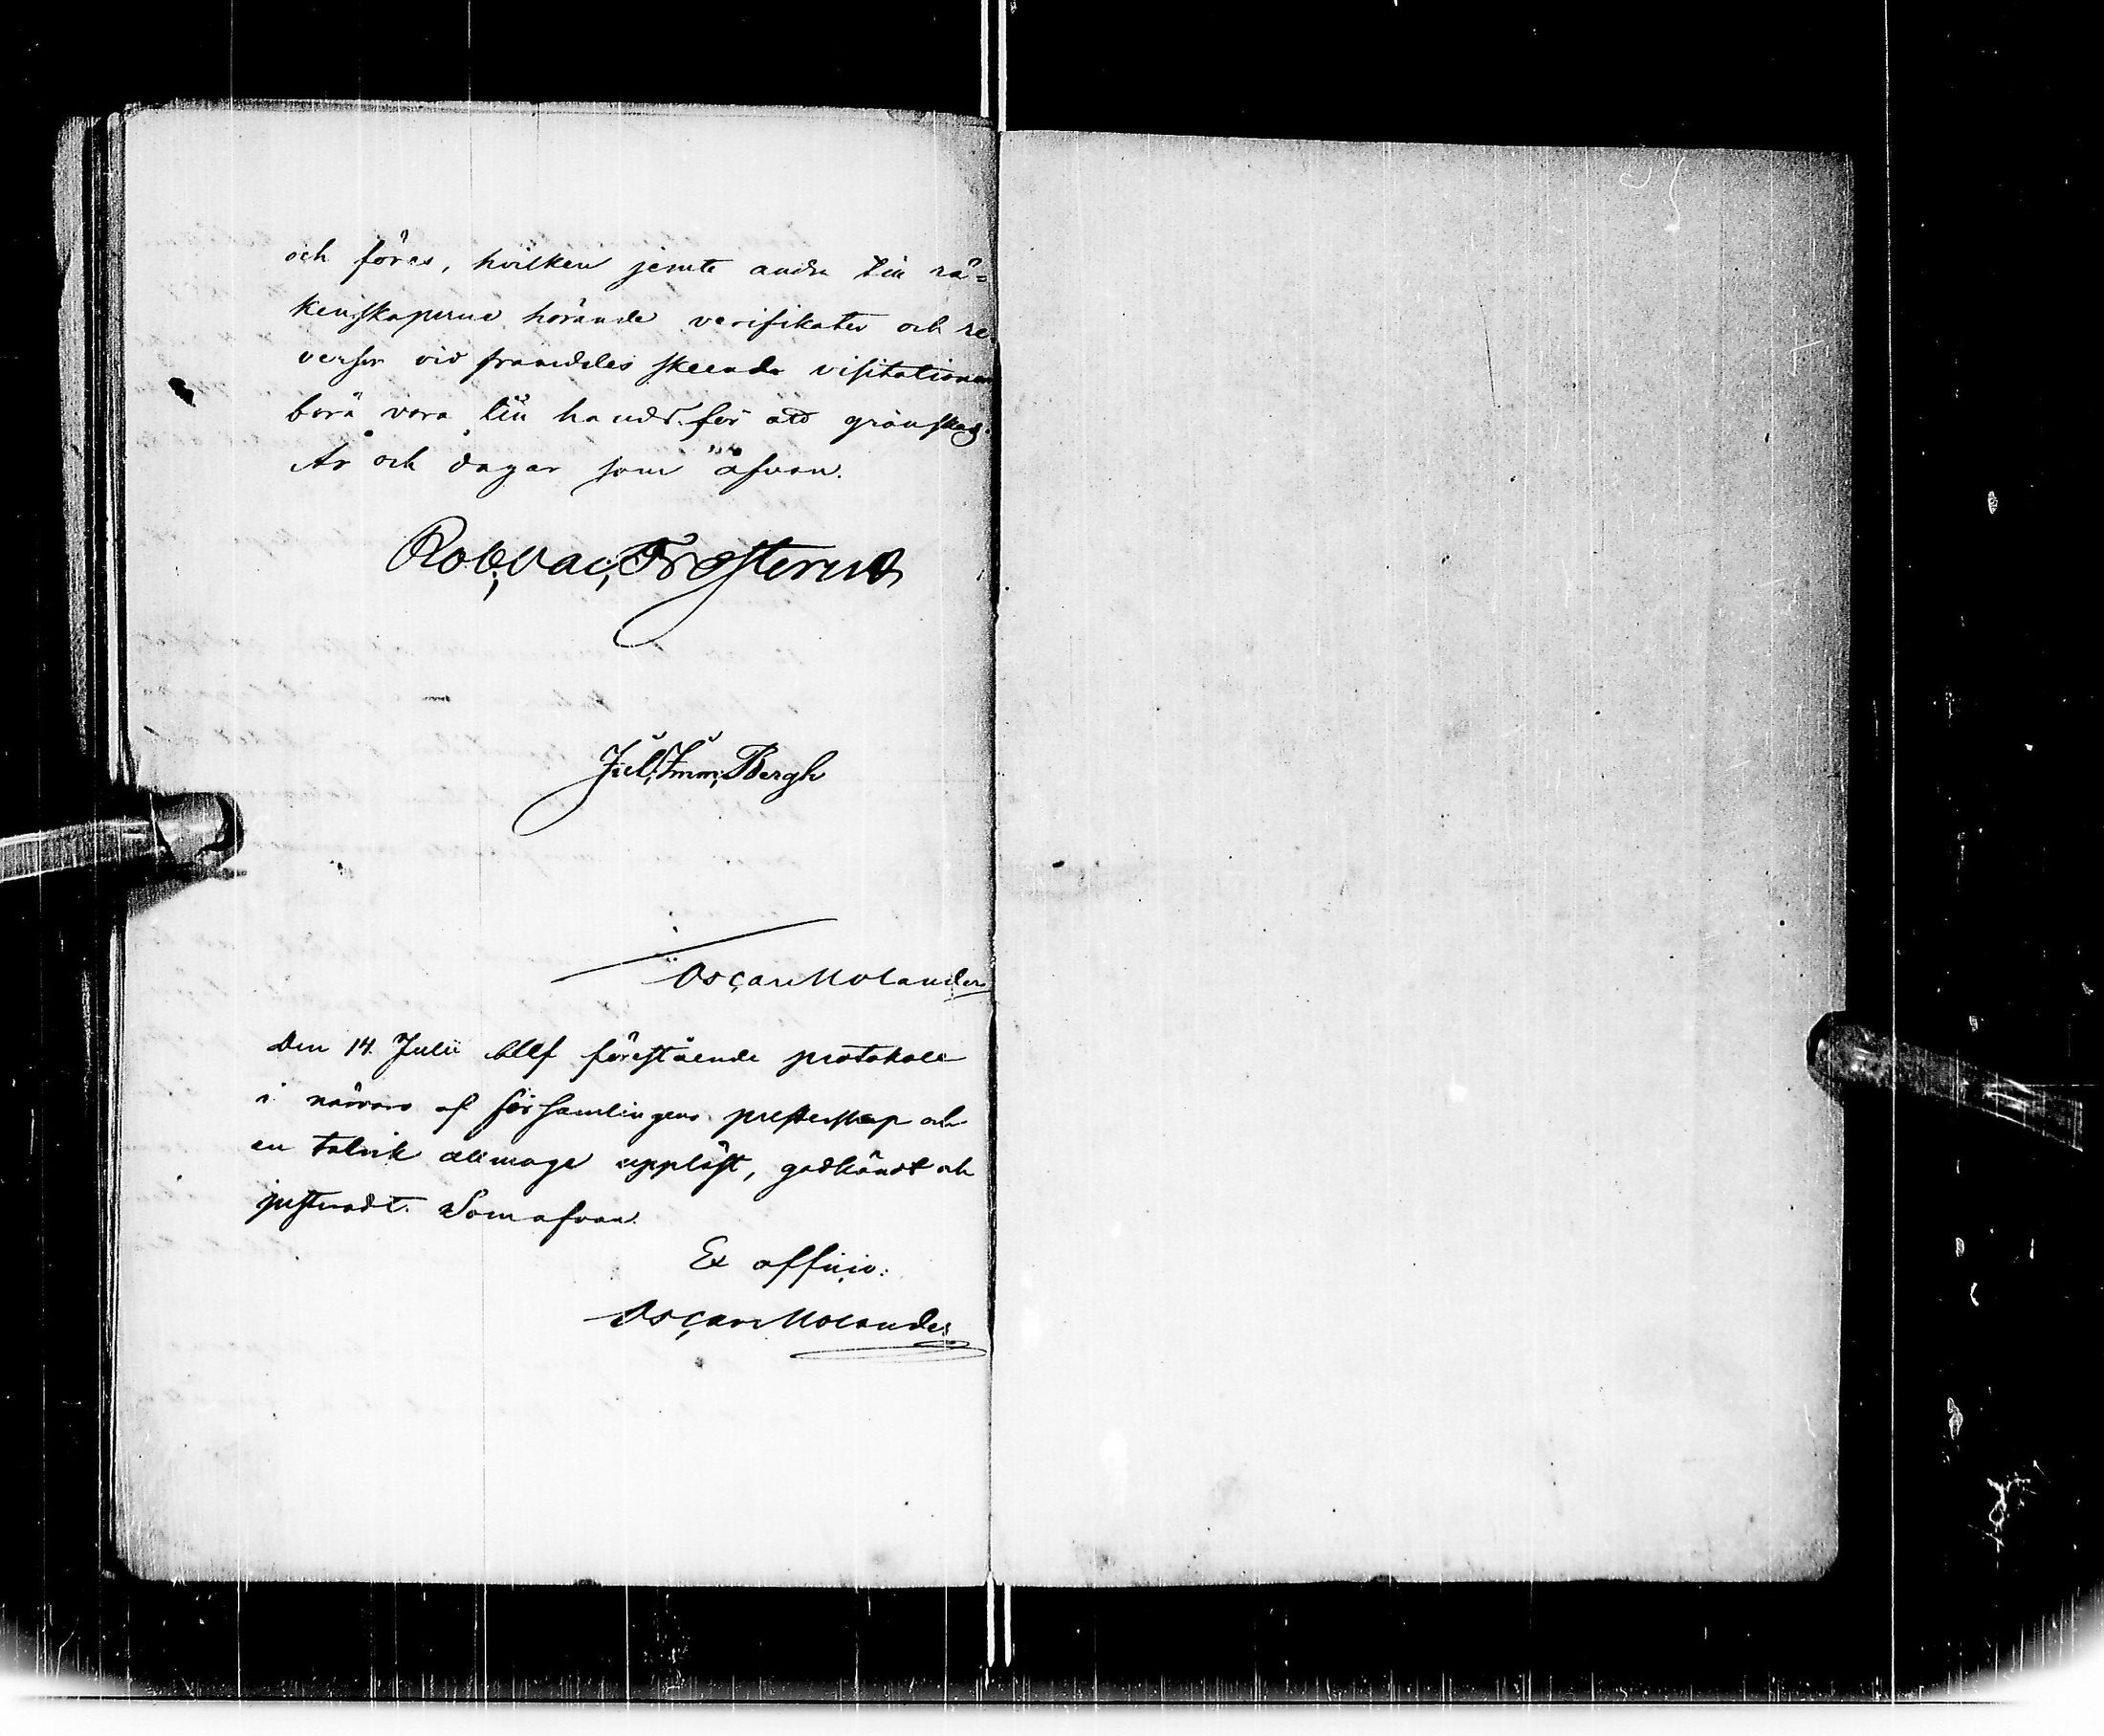 och föres, hvilken jemte andra till rä=
kenskaperna hörande verifikater och re-
verser vid framdeles skeende visitationer
böra vara till hands för att granskas.
År och dagar som ofvan.
Rob. Val. Frosterus
Jul. Imm. Bergh
Oscar Molander
Den 14 Julii blef förestående protokoll
i närvaro af församlingens presterskap och
en talrik allmoge uppläst, godkändt och
justeradt. Som ofvan.
Ex officio:
Oscar Molander